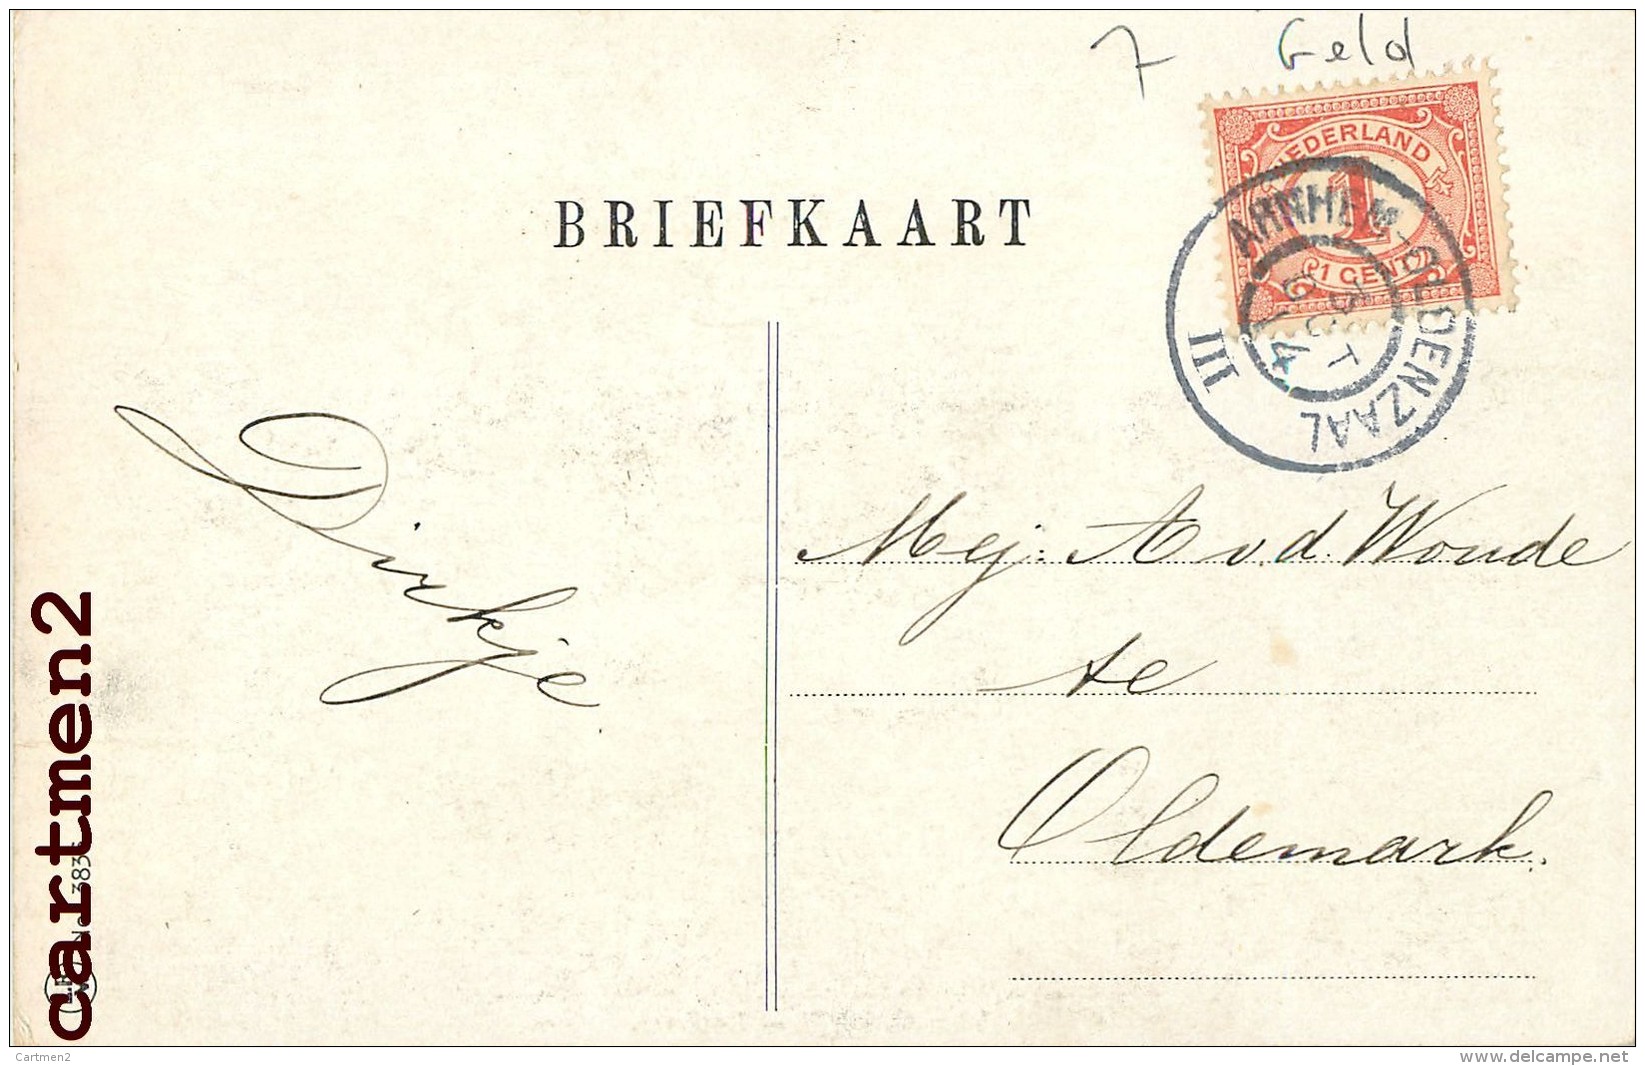 7 Geld
NEDERLAND
1
1 CENT
ARNHEM-OLDENZAAL
III
OCT
14
BRIEFKAART
Dirkje
Mej. A v.d. Woude
te
Oldemark.
No 3835
cartmen2
Cartmen2
www.delcampe.net